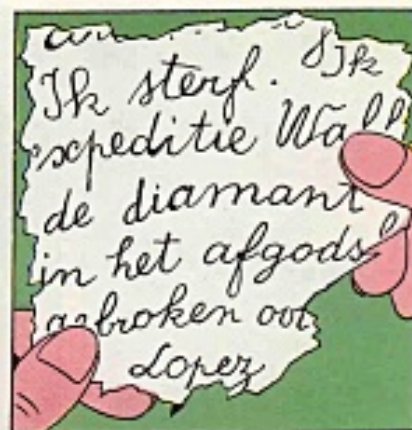 Ik sterf. Ik
expeditie Wal
de diamant
in het afgods
gebroken oor
Lopez